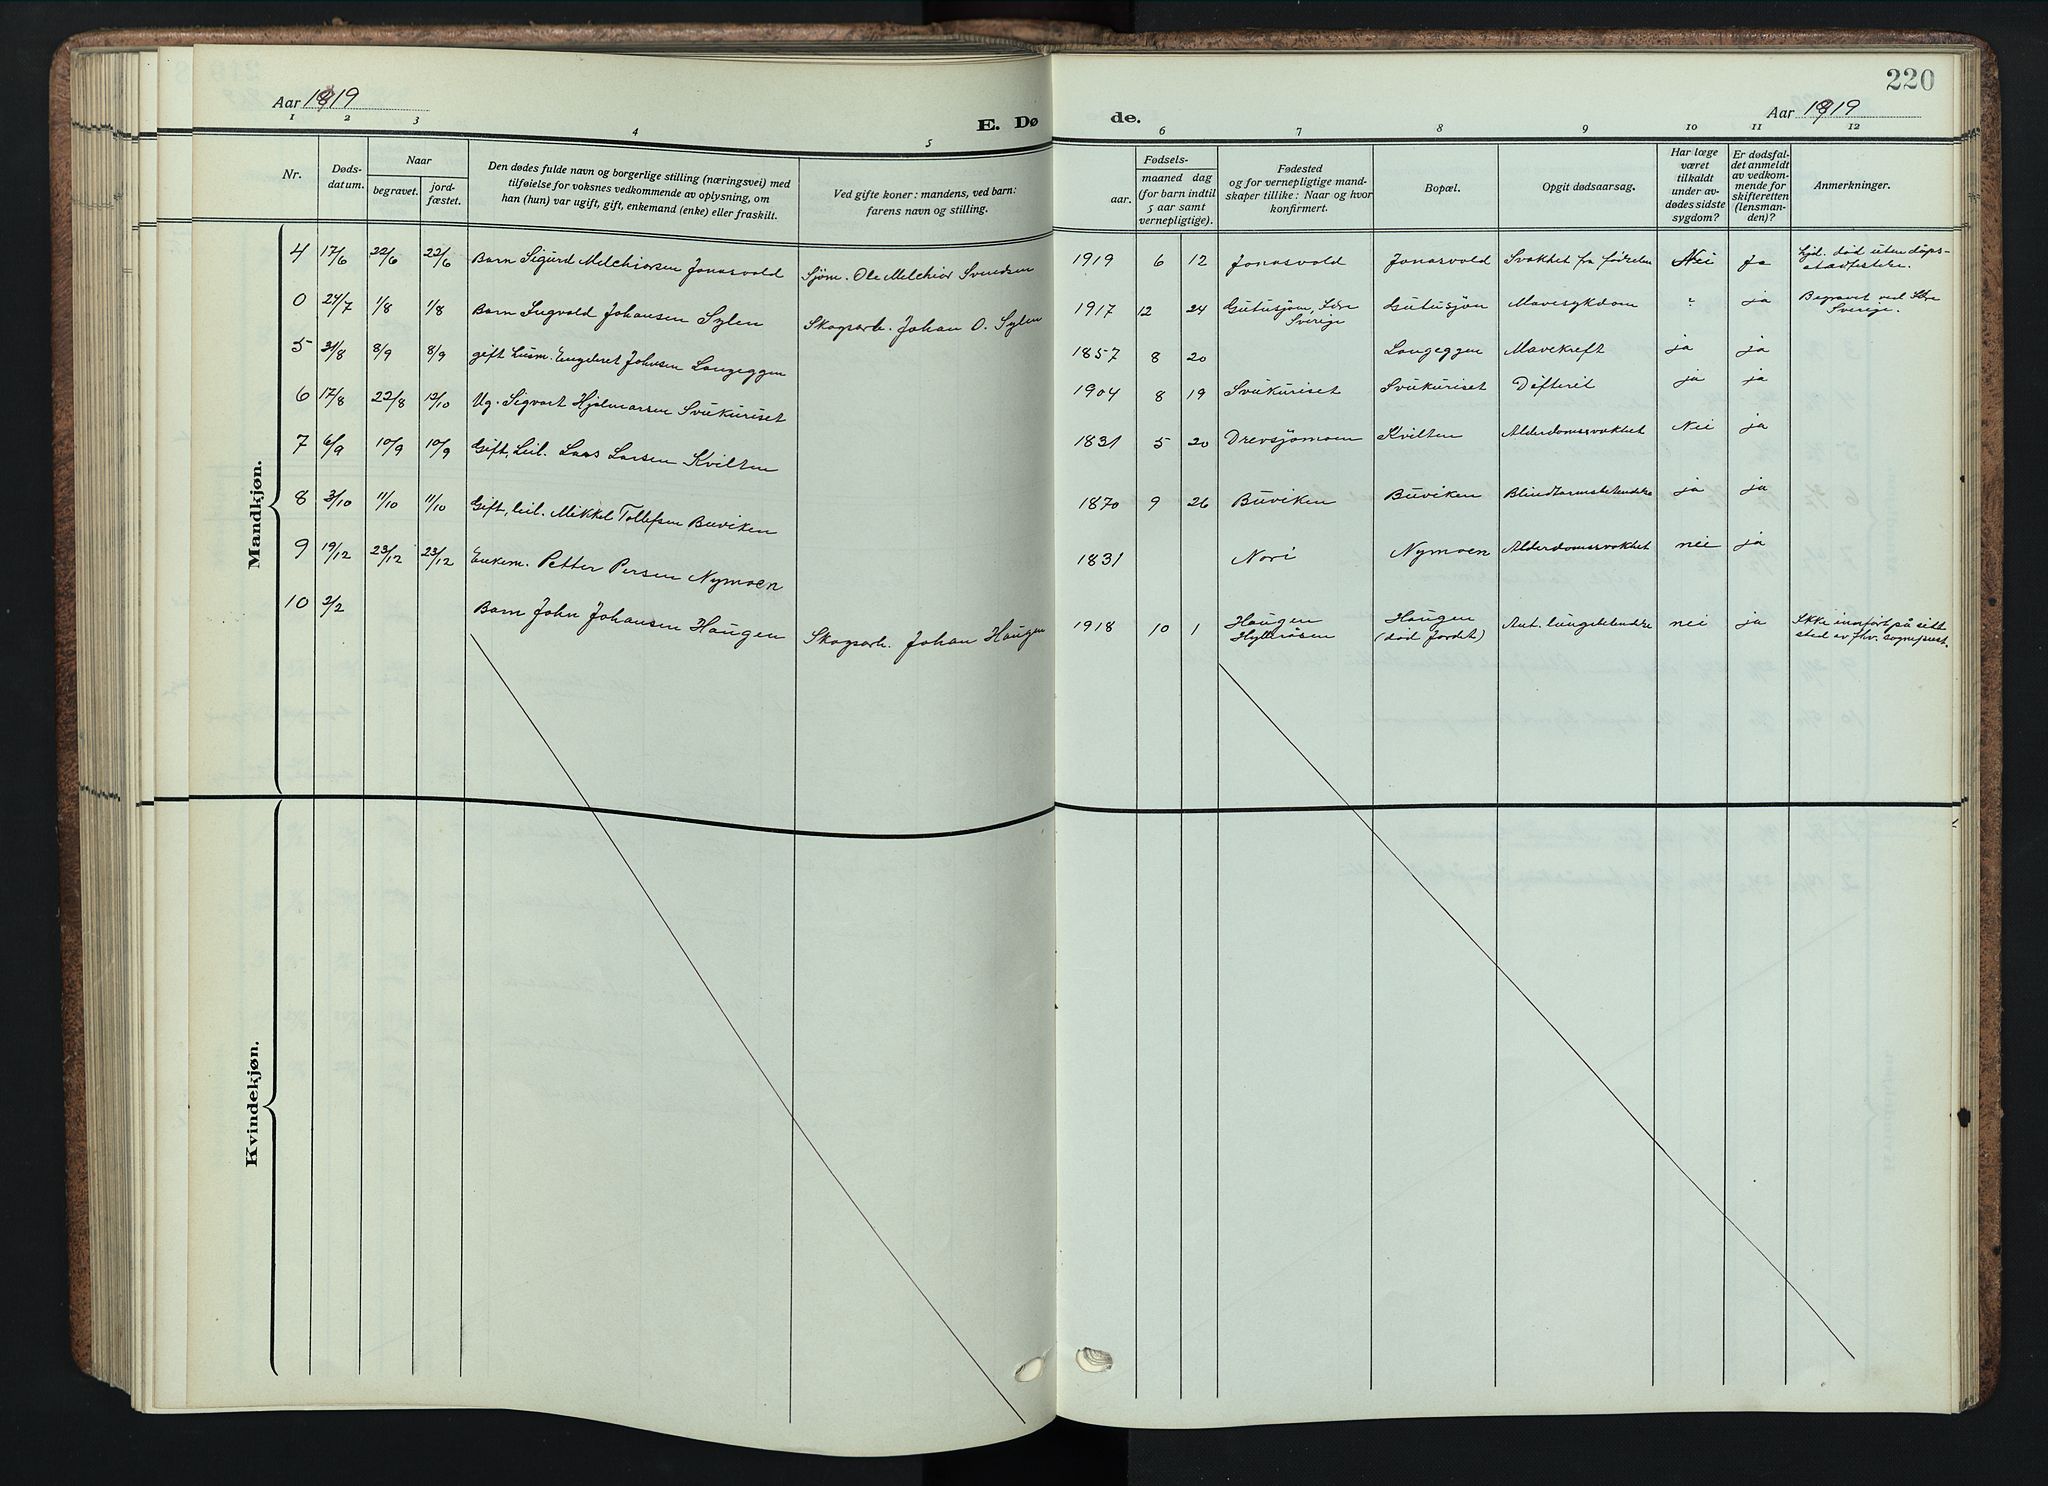 220
Aar 1919
Aar 1919
E. Dø de.
1 2 3 4 5 6 7 8 9 10 11 12
Nr.
Døds-
datum.
Naar
begravet.
jord-
fæstet.
Den dødes fulde navn og borgerlige stilling (næringsvei) med
tilføielse for voksnes vedkommende av oplysning, om
han (hun) var ugift, gift, enkemand (enke) eller fraskilt.
Ved gifte koner: mandens, ved barn:
farens navn og stilling.
Fødsels-
aar.
maaned dag
(for barn indtil
5 aar samt
vernepligtige).
Fødested
og for vernepligtige mand-
skaper tillike: Naar og hvor
konfirmert.
Bopæl.
Opgit dødsaarsag.
Har læge
været
tilkaldt
under av-
dødes sidste
sygdom?
Er dødsfal-
det anmeldt
av vedkom-
mende for
skifteretten
(lensman-
den)?
Anmerkninger.
Mandkjøn.
4 17/6 22/6 22/6 Barn Sigurd Melchiorsen Jonasvold Sjøm. Ole Melchior Svendsen 1919 6 12 Jonasvold Jonasvold Svakhet fra fødselen Nei Ja Hjd. død uten dåps-
stadfestelse.
0 24/7 1/8 1/8 Barn Ingvald Johansen Sylen Skogsarb. Johan O. Sylen 1917 12 24 Gutusjøn, Idre
Sverige Gutusjøn Mavesykdom ? ja Begravet ved Idre
Sverige.
5 31/8 8/9 8/9 gift Husm. Engebret Johnsen Langeggen 1857 8 20 Langeggen Mavekreft ja ja
6 17/8 22/8 12/10 Ug. Sigvart Hjalmarsen Svukuriset 1904 8 19 Svukuriset Svukuriset Difterit ja ja
7 6/9 10/9 10/9 Gift, Leil. Lars Larsen Kvilten 1831 5 20 Drevsjømoen Kvilten Alderdomssvakhet Nei ja
8 3/10 11/10 11/10 Gift, leil. Mikkel Tollefsen Buviken 1870 9 26 Buviken Buviken Blindtarmsbetendelse ja ja
9 19/12 23/12 23/12 Enkem. Petter Persen Nymoen 1831 Nori Nymoen Alderdomssvakhet nei ja
10 2/2 Barn John Johansen Haugen Skogsarb. Johan Haugen 1918 10 1 Haugen
Hylleråsen Haugen
(død Jordet) Aut. lungebetendelse nei ja Ikke innført på sitt
sted av fhv. sogneprest.
Kvindekjøn.